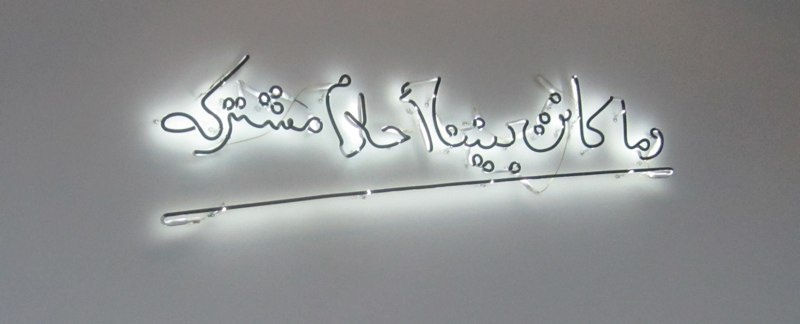 وما كانش بينا أحلام مشتركه